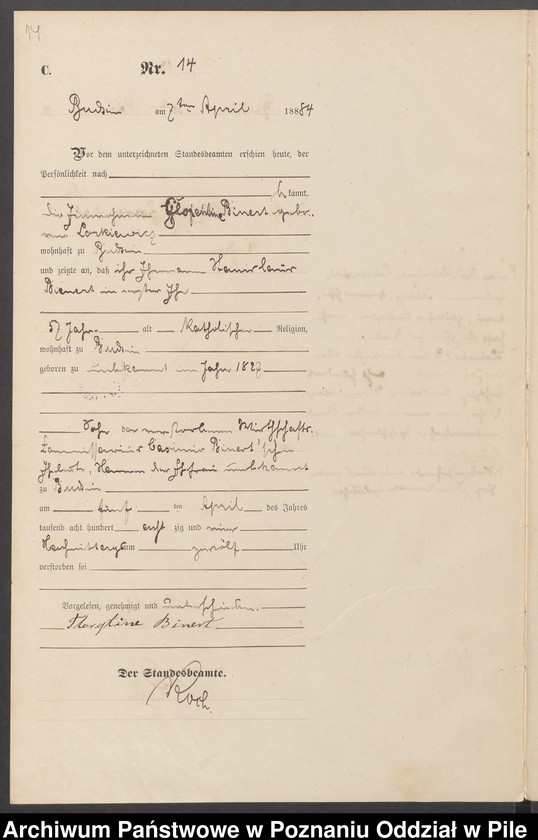 14
C. Nr. 14
Budsin am 7ten April 1884
Vor dem unterzeichneten Standesbeamten erschien heute, der
Persönlichkeit nach
bekannt.
die Florentine Binert gebo-
rene Lorkiewicz
wohnhaft zu Budsin
und zeigte an, daß ihr Ehemann Stanislaus
Binert in erster Ehe
57 Jahr alt katholischer Religion,
wohnhaft zu Budsin
geboren zu unbekannt im Jahr 1827
Sohn der verstorbenen Wirthschafts-
Commissarius Casimir Binert'schen
Eheleute, Namen der Ehefrau unbekannt
zu Budsin
am fünf ten April des Jahres
tausend acht hundert acht zig und vier
Nachmittags um zwölf Uhr
verstorben sei
Vorgelesen, genehmigt und unterschrieben.
Florentine Binert
Der Standesbeamte.
Koch
Archiwum Państwowe w Poznaniu Oddział w Pile